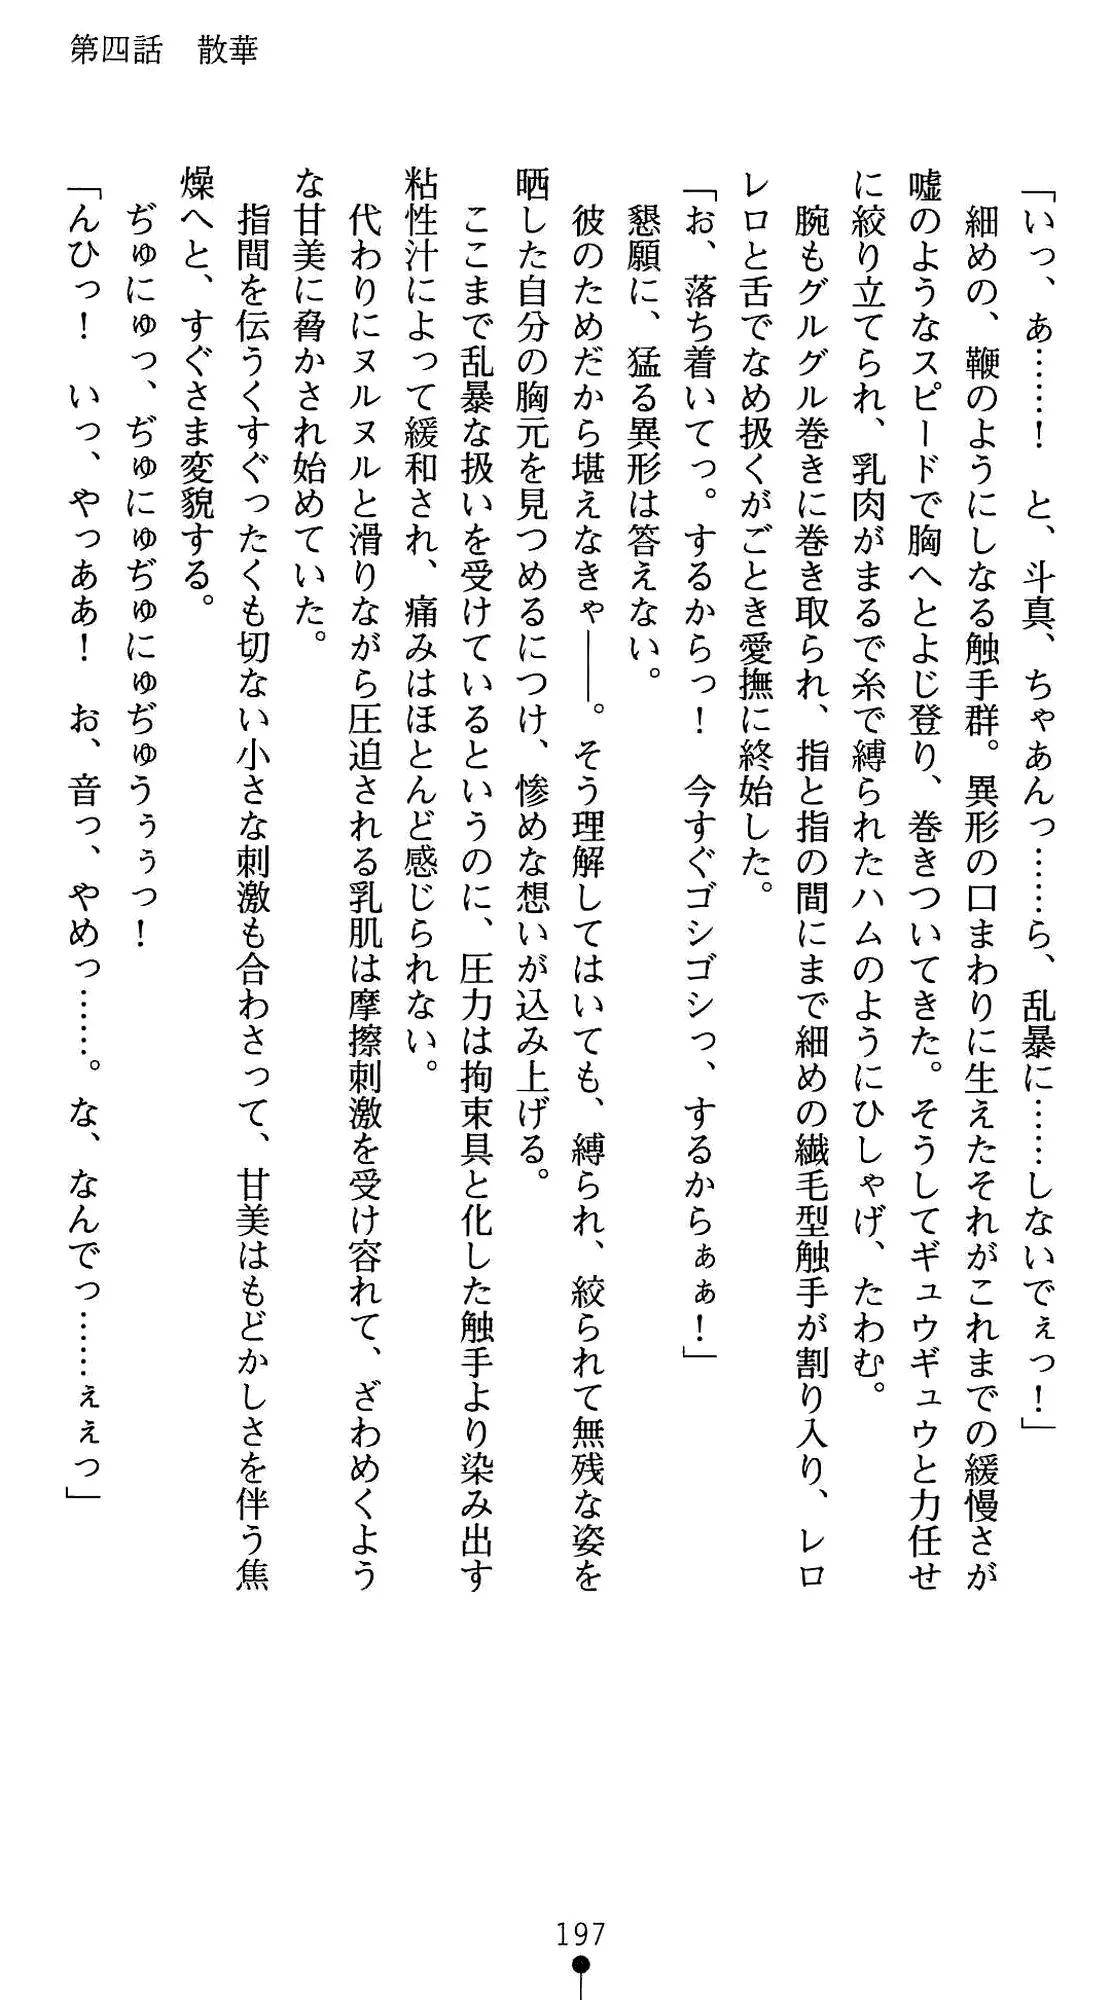 第四話　散華
「いっ、あ……！　と、斗真、ちゃあんっ……ら、乱暴に……しないでぇっ！」
　細めの、鞭のようにしなる触手群。異形の口まわりに生えたそれがこれまでの緩慢さが
嘘のようなスピードで胸へとよじ登り、巻きついてきた。そうしてギュウギュウと力任せ
に絞り立てられ、乳肉がまるで糸で縛られたハムのようにひしゃげ、たわむ。
　腕もグルグル巻きに巻き取られ、指と指の間にまで細めの繊毛型触手が割り入り、レロ
レロと舌でなめ扱くがごとき愛撫に終始した。
「お、落ち着いてっ。するからっ！　今すぐゴシゴシっ、するからぁぁ！」
　懇願に、猛る異形は答えない。
　彼のためだから堪えなきゃ――。そう理解してはいても、縛られ、絞られて無残な姿を
晒した自分の胸元を見つめるにつけ、惨めな想いが込み上げる。
　ここまで乱暴な扱いを受けているというのに、圧力は拘束具と化した触手より染み出す
粘性汁によって緩和され、痛みはほとんど感じられない。
　代わりにヌルヌルと滑りながら圧迫される乳肌は摩擦刺激を受け容れて、ざわめくよう
な甘美に脅かされ始めていた。
　指間を伝うくすぐったくも切ない小さな刺激も合わさって、甘美はもどかしさを伴う焦
燥へと、すぐさま変貌する。
　ぢゅにゅっ、ぢゅにゅぢゅにゅぢゅうぅぅっ！
「んひっ！　いっ、やっああ！　お、音っ、やめっ……。な、なんでっ……ぇぇっ」
197